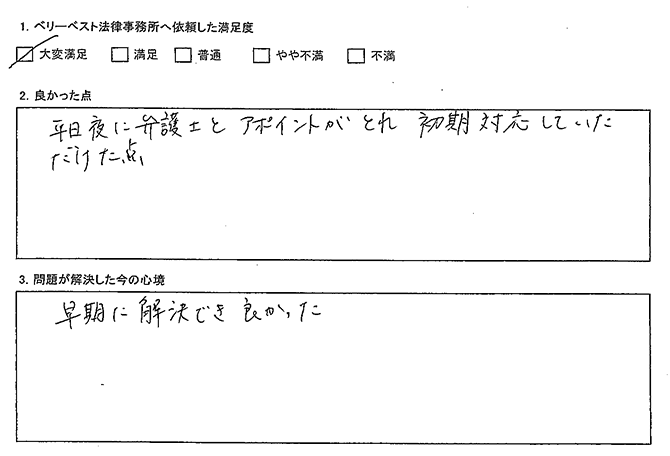 1. ベリーベスト法律事務所へ依頼した満足度
大変満足 満足 普通 やや不満 不満
2. 良かった点
平日夜に弁護士とアポイントがとれ 初期対応していた
だけた点
3. 問題が解決した今の心境
早期に解決でき良かった